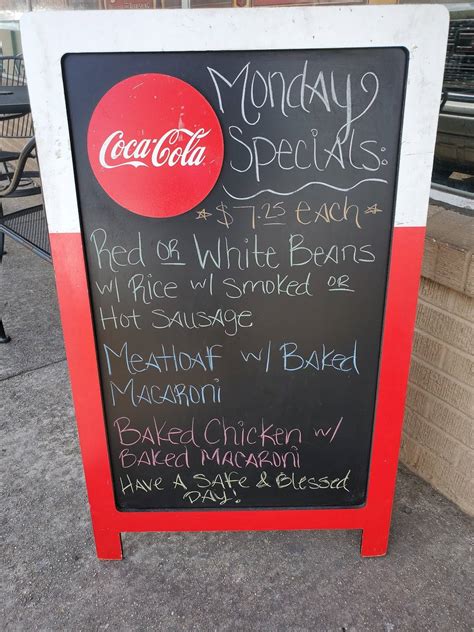 Coca-Cola
Monday
Specials:
$7.25 each
Red or White Beans
w/ Rice w/ Smoked or
Hot Sausage
Meatloaf w/ Baked
Macaroni
Baked Chicken w/
Baked Macaroni
Have A Safe & Blessed
Day!